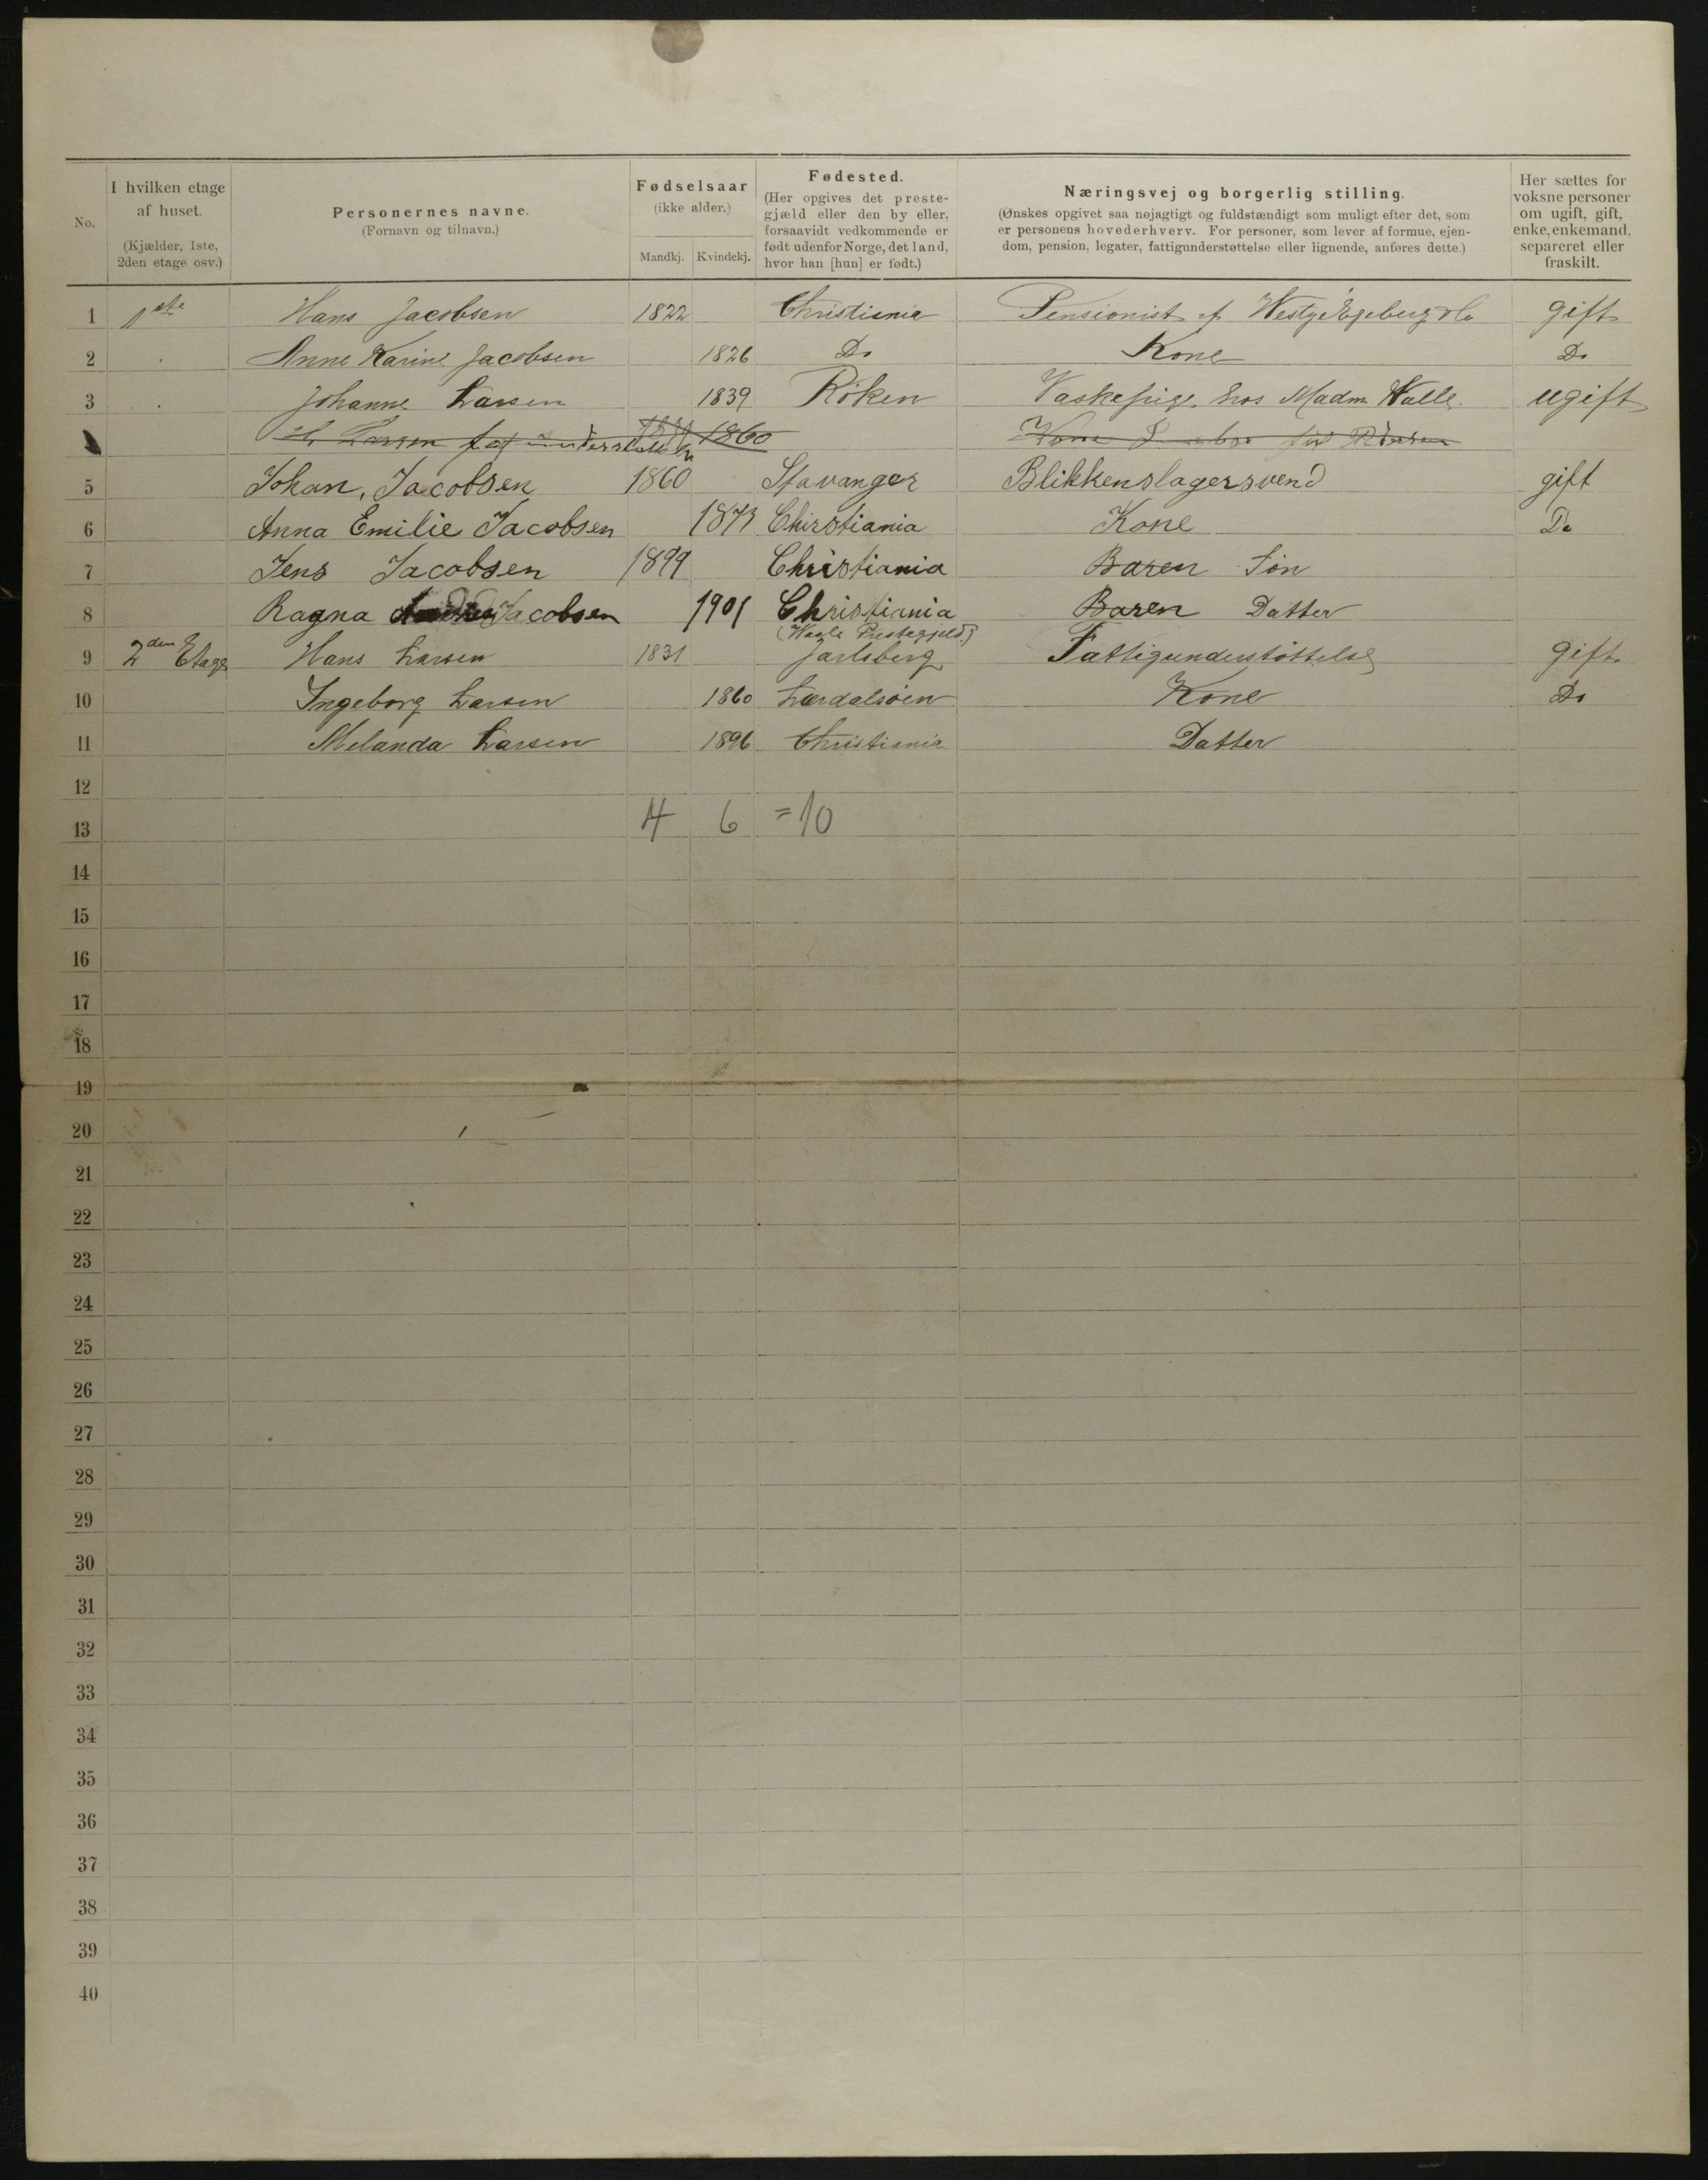 No. | I hvilken etage af huset. (Kjælder, 1ste, 2den etage osv.) | Personernes navne. (Fornavn og tilnavn.) | Fødselsaar (ikke alder.) Mandkj. Kvindekj. | Fødested. (Her opgives det prestegjæld eller den by eller, forsaavidt vedkommende er født udenfor Norge, det land, hvor han [hun] er født.) | Næringsvej og borgerlig stilling. (Ønskes opgivet saa nøjagtigt og fuldstændigt som muligt efter det, som er personens hovederhverv. For personer, som lever af formue, ejendom, pension, legater, fattigunderstøttelse eller lignende, anføres dette.) | Her sættes for voksne personer om ugift, gift, enke, enkemand, separeret eller fraskilt.
1 1ste Hans Jacobsen 1822 Christiania Pensionist af Westye Egeberg & Co gift
2 Anne Karine Jacobsen 1826 Do Kone Do
3 Johanne Larsen 1839 Röken Vaskepige hos Madm Walle. ugift
Larsen 1860 Kone
5 Johan, Jacobsen 1860 Stavanger Blikkenslagersvend gift
6 Anna Emilie Jacobsen 1873 Chirstiania Kone Do
7 Jens Jacobsen 1899 Christiania Baren Sön
8 Ragna Jacobsen 1901 Christiania Baren Datter
9 2den Etage Hans Larsen 1831 Jarlsberg Fattigunderstöttelse gift
10 Ingeborg Larsen 1860 Lærdalsöen Kone Do
11 Melanda Larsen 1896 Christiania Datter
12
13 4 6 =10
14
15
16
17
18
19
20
21
22
23
24
25
26
27
28
29
30
31
32
33
34
35
36
37
38
39
40